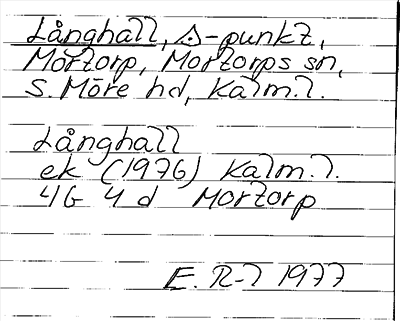 Långhall, △-punkt,
Mortorp, Mortorps sn,
S. Möre hd, Kalm.l.
Långhall
ek (1976) Kalm.l.
4G 4 d Mortorp
E. R-l 1977